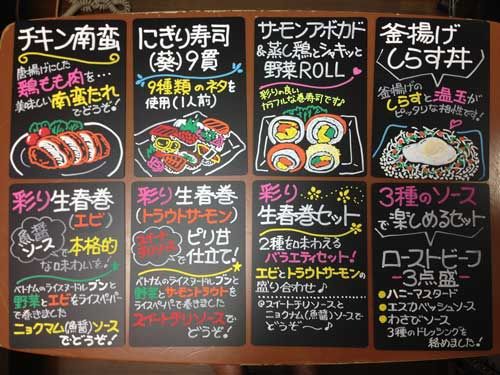 チキン南蛮
唐揚げにした
鶏もも肉を…
美味しい南蛮たれ
でどうぞ!
にぎり寿司
(葵)9貫
9種類のネタを
使用(1人前)
サーモンアボカド
&蒸し鶏とシャキッと
野菜ROLL
彩りの良い
カラフルな巻寿司です♪
釜揚げ
しらす丼
釜揚げの
しらすと温玉が
ピッタリな相性です!
彩り生春巻
(エビ)
魚醬
ソースで本格的
な味わいを!
ベトナムのライスヌードルブンと
野菜とエビをライスペーパー
で巻きました
ニョクマム(魚醤)ソース
でどうぞ!
彩り生春巻
(トラウトサーモン)
スイートチリソースでピリ甘
仕立て!
ベトナムのライスヌードルブン
と野菜とサーモントラウトを
ライスペーパーで巻きました
スイートチリソースで
どうぞ!
彩り
生春巻セット
2種を味わえる
バラエティセット!
エビとトラウトサーモンの
盛り合わせ♪
@スイートチリソースと
ニョクナム(魚醤)ソースで
どうぞ〜♪
3種のソース
で楽しめるセット
ローストビーフ
ー3点盛ー
●ハニーマスタード
●エスカベッシュソース
●わさびソース
3種のドレッシングを
絡めました!